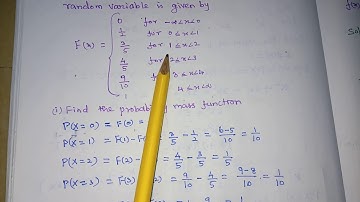 random variable is given by
F(x) =
0 for -∞ < x < 0
1/2 for 0 ≤ x < 1
3/5 for 1 ≤ x < 2
4/5 for 2 ≤ x < 3
9/10 for 3 ≤ x < 4
1 4 ≤ x < ∞
(i) Find the probability mass function
P(x = 0) = F(0) =
P(x = 1) = F(1) - F( = 3/5 - 1/2 = 6-5/10 = 1/10
P(x = 2) = F(2) - = 4/5 - 3/5 = 1/5
P(x = 3) = F(3) - 2) = 9/10 - 4/5 = 9-8/10 = 1/10